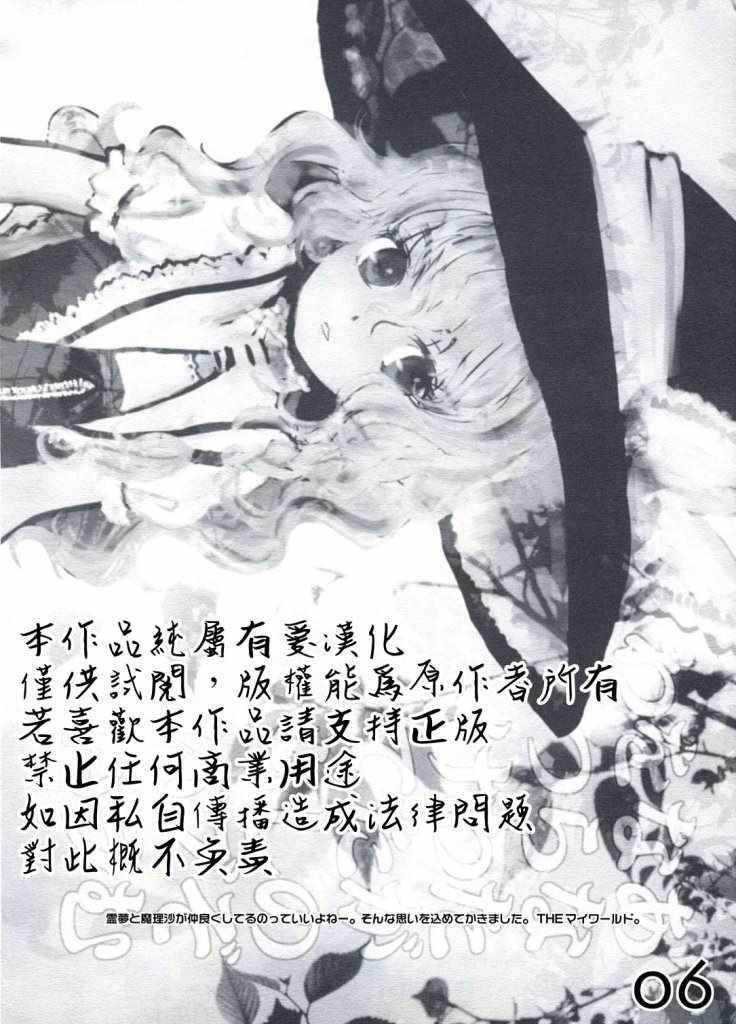 本作品純屬有愛漢化
僅供試閱，版權能為原作者所有
若喜歡本作品請支持正版
禁止任何商業用途
如因私自傳播造成法律問題
對此概不負責
霊夢と魔理沙が仲良くしてるのっていいよねー。そんな思いを込めてかきました。THEマイワールド。
06